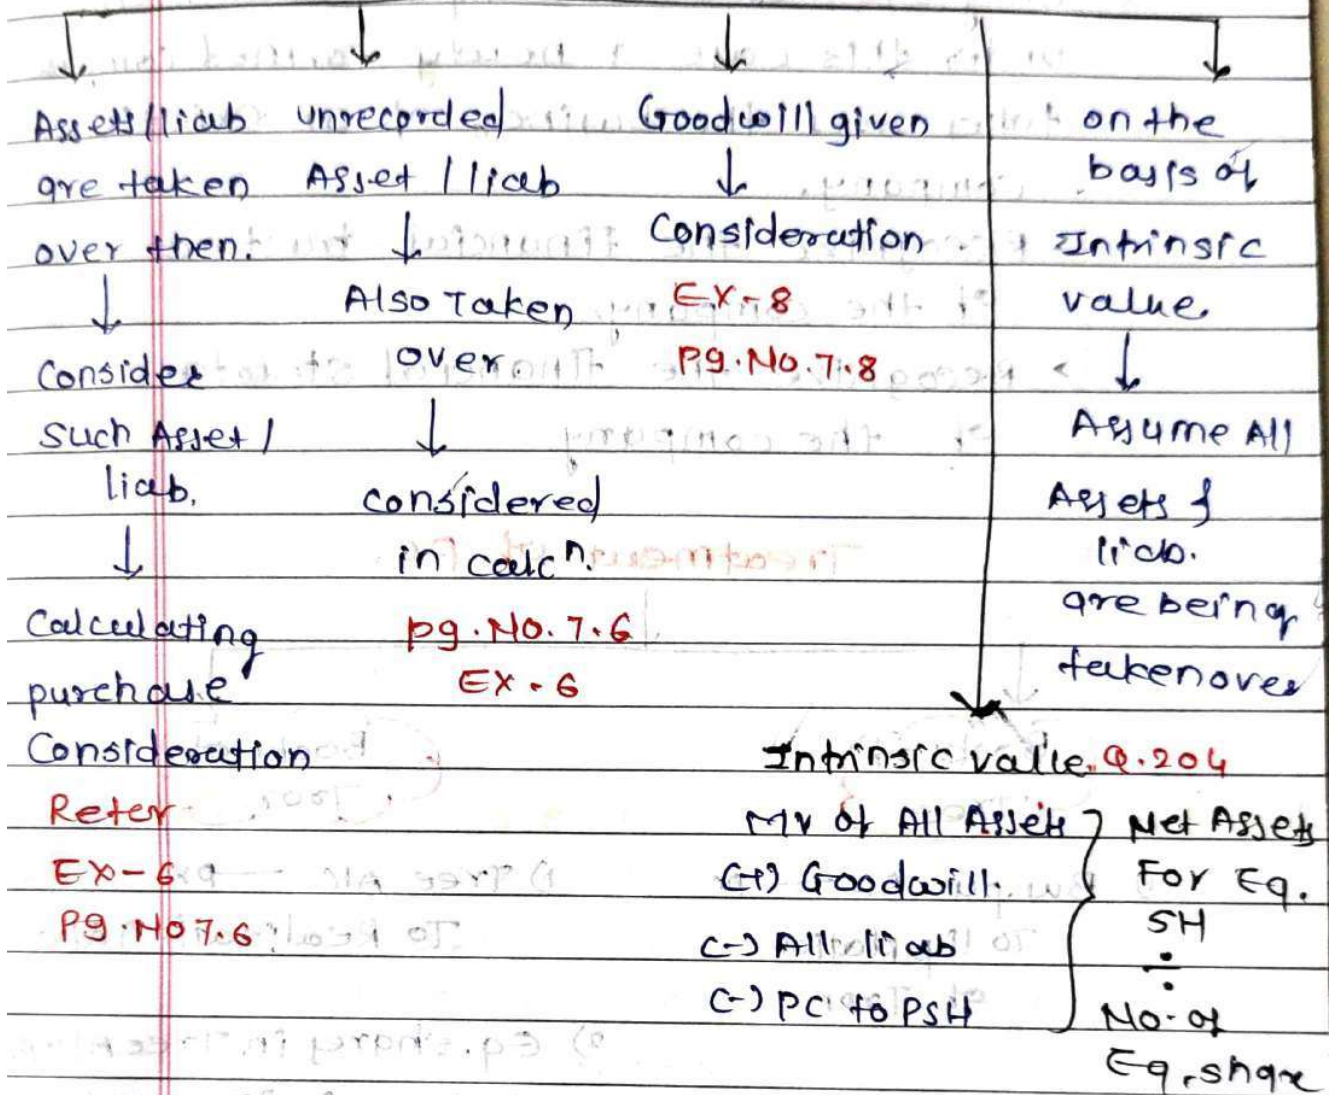 Assets/liab
are taken
over then.
↓
Consider
such Asset/
liab.
↓
Calculating
purchase
Consideration
Refer
EX-6
Pg.No 7.6
unrecorded
Asset/liab
↓
Also Taken
over.
↓
considered
in calcⁿ.
pg.No.7.6
EX-6
Goodwill given
↓
Consideration
EX-8
Pg.No.7.8
on the
basis of
Intrinsic
value.
↓
Assume All
Assets &
liab.
are being
takenover
Intrinsic value. Q.204
MV of All Assets
(+) Goodwill.
(-) All liab
(-) PC to PSH
Net Assets
For Eq.
SH
÷
No. of
Eq. share